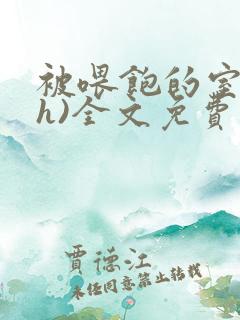 被喂飽的室
h)全文免費
賈德江
未经同意禁止转载